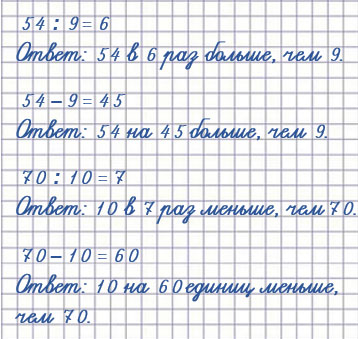 54 : 9 = 6
Ответ: 54 в 6 раз больше, чем 9.
54 – 9 = 45
Ответ: 54 на 45 больше, чем 9.
70 : 10 = 7
Ответ: 10 в 7 раз меньше, чем 70.
70 – 10 = 60
Ответ: 10 на 60 единиц меньше,
чем 70.